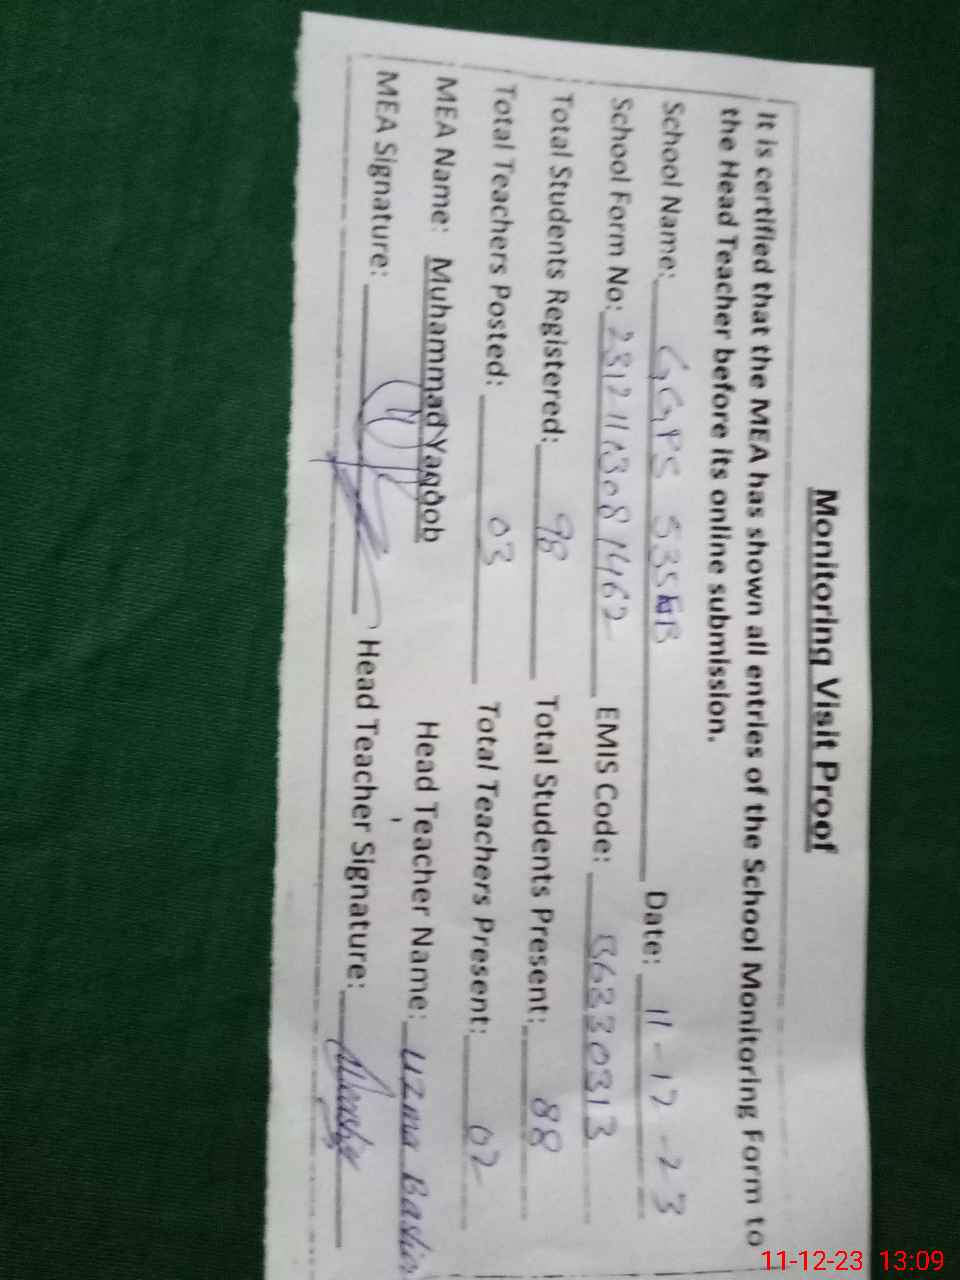 Monitoring Visit Proof
It is certified that the MEA has shown all entries of the School Monitoring Form to
the Head Teacher before its online submission.
School Name: GGPS 535 EB Date: 11-12-23
School Form No: EMIS Code: 36330313
Total Students Registered: 98 Total Students Present: 88
Total Teachers Posted: 03 Total Teachers Present: 02
MEA Name: Muhammad Yaqoob Head Teacher Name: Uzma Bashir
MEA Signature: Head Teacher Signature:
11-12-23 13:09